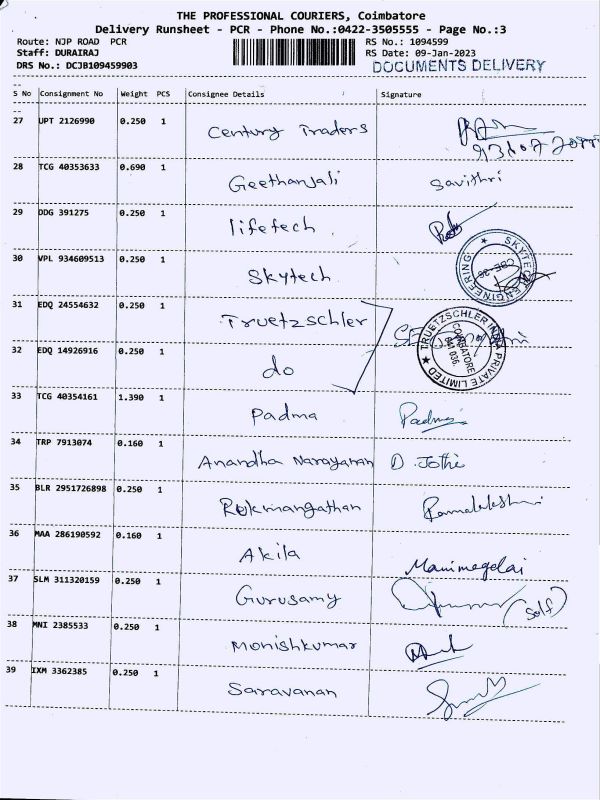 THE PROFESSIONAL COURIERS, Coimbatore
Delivery Runsheet - PCR - Phone No.:0422-3505555 - Page No.:3
Route: NJP ROAD PCR
RS No.: 1094599
Staff: DURAIRAJ
RS Date: 09-Jan-2023
DRS No.: DCJB109459903
DOCUMENTS DELIVERY
S No Consignment No Weight PCS Consignee Details Signature
27 UPT 2126990 0.250 1 Century Traders
28 TCG 40353633 0.690 1 Geethanjali Savithri
29 DDG 391275 0.250 1 lifetech
30 VPL 934609513 0.250 1 Skytech
SKYTECH ENGINEERING
31 EDQ 24554632 0.250 1 Truetzschler
TRUETZSCHLER INDIA PRIVATE LIMITED
COIMBATORE
641 036
32 EDQ 14926916 0.250 1 do
33 TCG 40354161 1.390 1 Padma Padma
34 TRP 7913074 0.160 1 Anandha Narayanan D. Jothi
35 BLR 2951726898 0.250 1 Rukmangathan
36 MAA 286190592 0.160 1 Akila Manimegalai
37 SLM 311320159 0.250 1 Gurusamy (Self)
38 MNI 2385533 0.250 1 Monishkumar
39 IXM 3362385 0.250 1 Saravanan